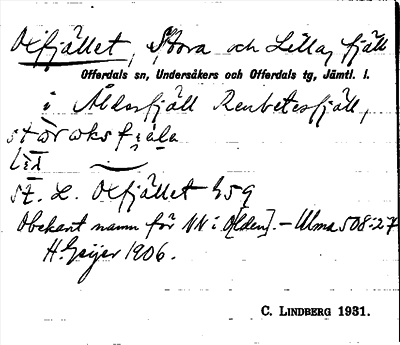 Oxfjället, Stora och Lilla, fjäll
Offerdals sn, Undersåkers och Offerdals tg, Jämtl. l.
i Åldersfjäll Renbetesfjäll,
st. L. Oxfjället h59
Obekant namn för NN i O[lden]. – Ulma 508:27
H. Geijer 1906.
C. LINDBERG 1931.